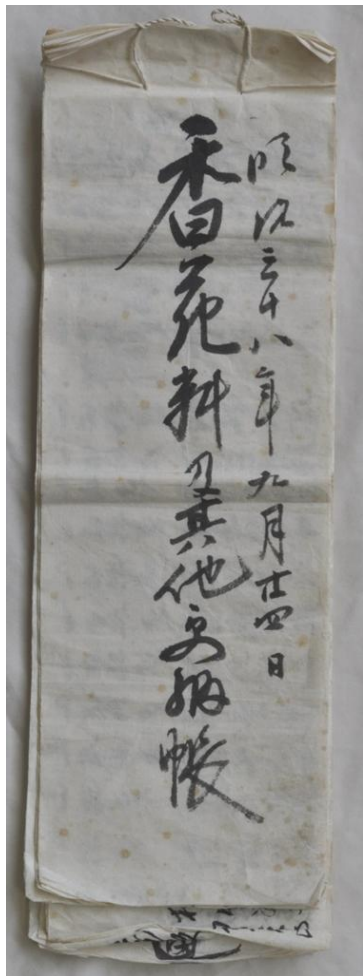 明治三十八年九月廿四日
香花料及其他受納帳